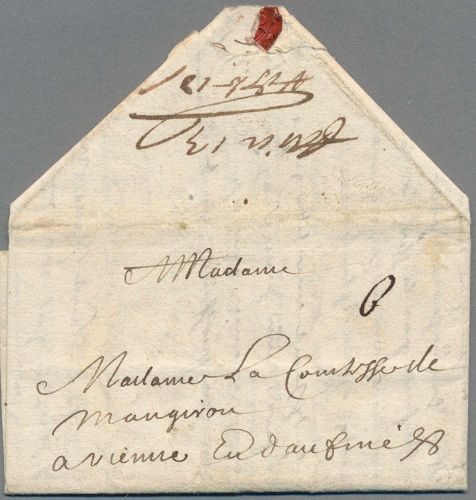 A Madame
6
Madame La Comtesse de
Maugiron
a vienne En daufiné